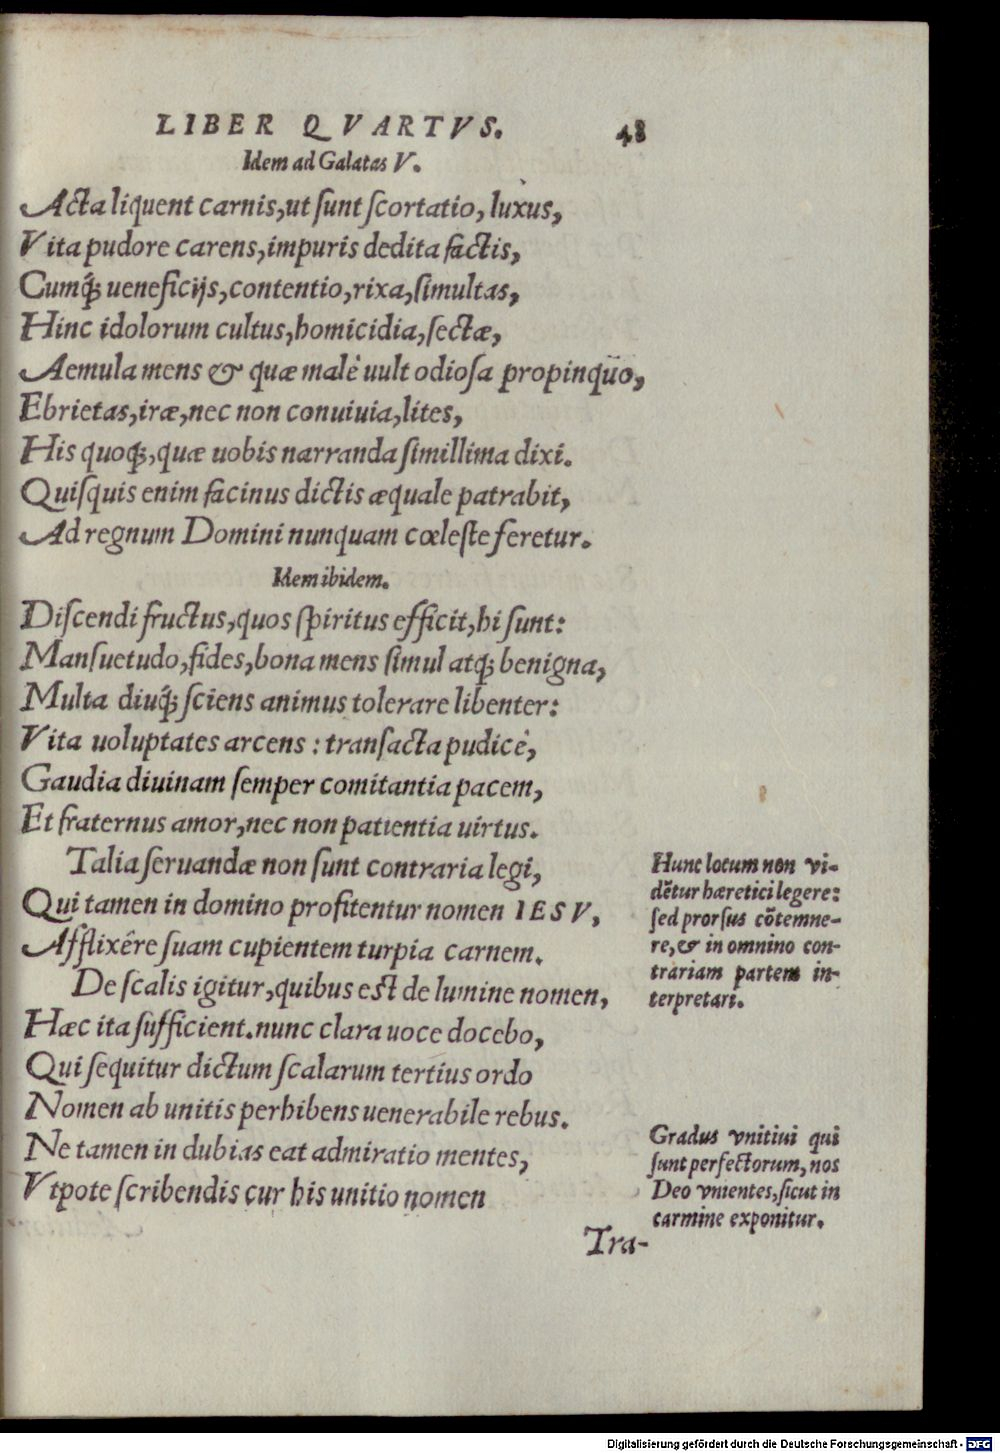 LIBER QVARTVS. 48
Idem ad Galatas V.
Acta liquent carnis, ut ſunt ſcortatio, luxus,
Vita pudore carens, impuris dedita factis,
Cumq́; ueneficijs, contentio, rixa, ſimultas,
Hinc idolorum cultus, homicidia, ſectæ,
Aemula mens & quæ malè uult odioſa propinquo,
Ebrietas, iræ, nec non conuiuia, lites,
His quoq;, quæ uobis narranda ſimillima dixi.
Quiſquis enim facinus dictis æquale patrabit,
Ad regnum Domini nunquam cœleſte feretur.
Idem ibidem.
Diſcendi fructus, quos ſpiritus efficit, hi ſunt:
Manſuetudo, fides, bona mens ſimul atq; benigna,
Multa diuq́; ſciens animus tolerare libenter:
Vita uoluptates arcens: tranſacta pudicè,
Gaudia diuinam ſemper comitantia pacem,
Et fraternus amor, nec non patientia uirtus.
Talia ſeruandæ non ſunt contraria legi,
Qui tamen in domino profitentur nomen IESV,
Afflixêre ſuam cupientem turpia carnem.
De ſcalis igitur, quibus eſt de lumine nomen,
Hæc ita ſufficient. nunc clara uoce docebo,
Qui ſequitur dictum ſcalarum tertius ordo
Nomen ab unitis perhibens uenerabile rebus.
Ne tamen in dubias eat admiratio mentes,
Vtpote ſcribendis cur his unitio nomen
Tra-
Hunc locum non vi-
dẽtur hæretici legere:
ſed prorſus cõtemne-
re, & in omnino con-
trariam partem in-
terpretari.
Gradus vnitiui qui
ſunt perfectorum, nos
Deo vnientes, ſicut in
carmine exponitur.
Digitalisierung gefördert durch die Deutsche Forschungsgemeinschaft - DFG